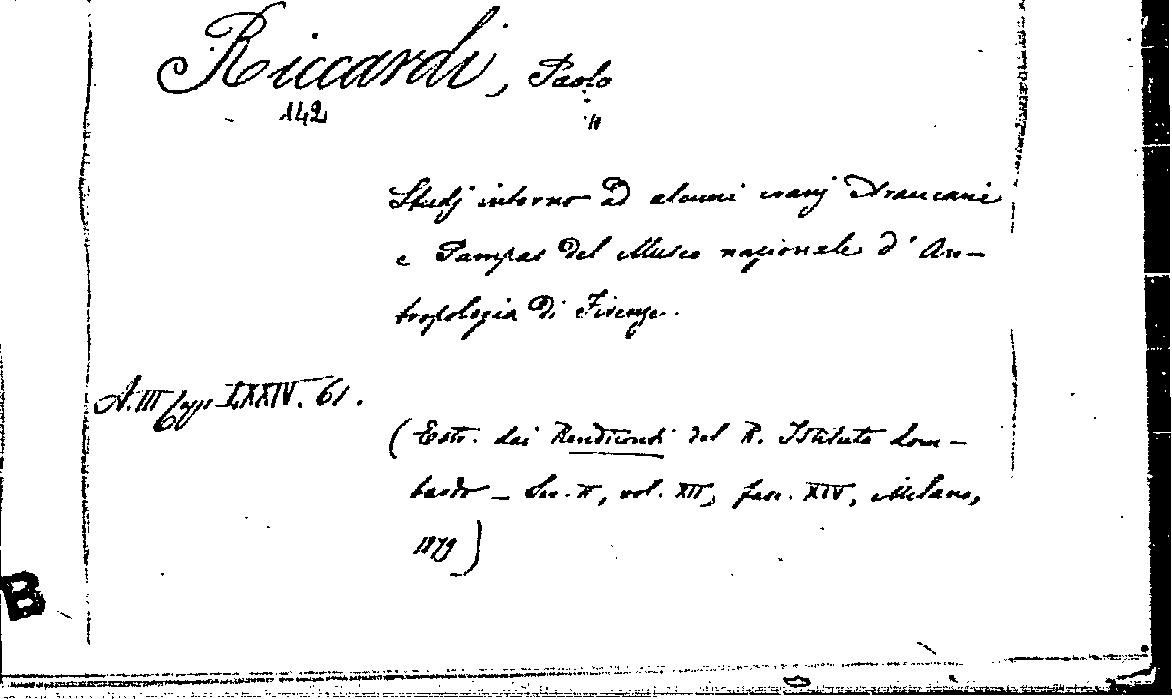 Riccardi, Paolo
142
Studj intorno ad alcuni cranj Araucani
e Pampas del Museo nazionale d'An-
tropologia di Firenze.
A. III LXXIV. 61.
(Estr. dai Rendiconti del R. Istituto Lom-
bardo - Ser. II, vol. XII, fasc. XIV, Milano,
1879)
B